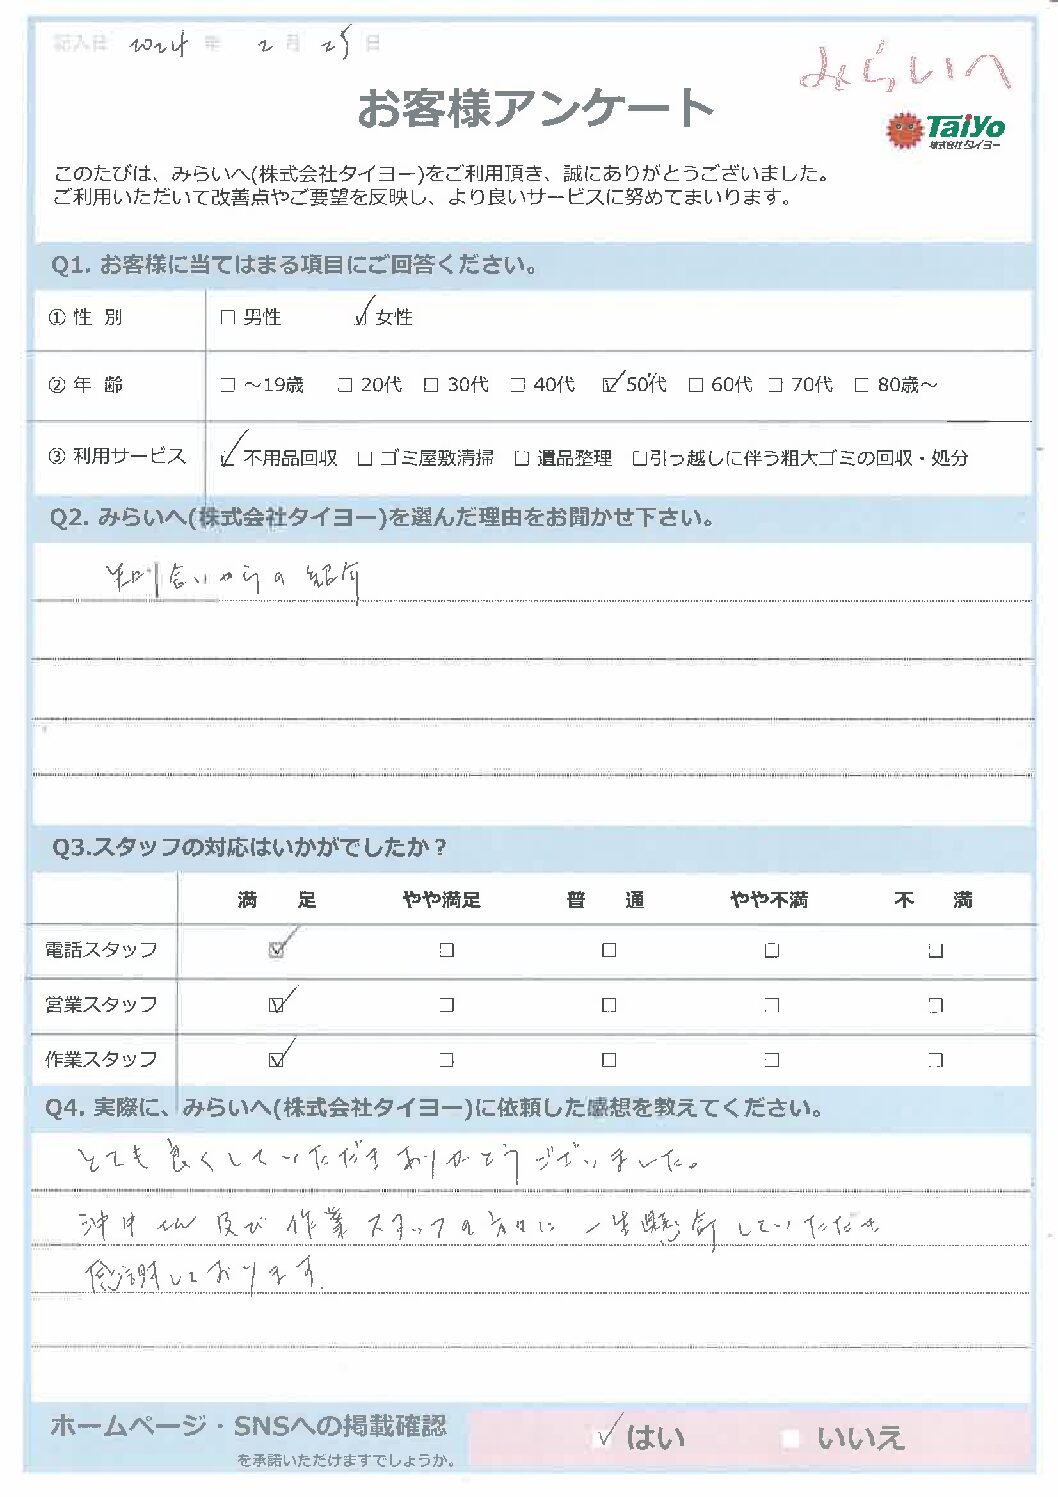 記入日 2024 年 2 月 25 日
みらいへ
お客様アンケート
Taiyo
株式会社タイヨー
このたびは、みらいへ(株式会社タイヨー)をご利用頂き、誠にありがとうございました。
ご利用いただいて改善点やご要望を反映し、より良いサービスに努めてまいります。
Q1. お客様に当てはまる項目にご回答ください。
① 性 別 □ 男性 ☑ 女性
② 年 齢 □ ～19歳 □ 20代 □ 30代 □ 40代 ☑ 50代 □ 60代 □ 70代 □ 80歳～
③ 利用サービス ☑ 不用品回収 □ ゴミ屋敷清掃 □ 遺品整理 □引っ越しに伴う粗大ゴミの回収・処分
Q2. みらいへ(株式会社タイヨー)を選んだ理由をお聞かせ下さい。
知り合いからの紹介
Q3.スタッフの対応はいかがでしたか？
満 足 やや満足 普 通 やや不満 不 満
電話スタッフ ☑ □ □ □ □
営業スタッフ ☑ □ □ □ □
作業スタッフ ☑ □ □ □ □
Q4. 実際に、みらいへ(株式会社タイヨー)に依頼した感想を教えてください。
とても良くしていただきありがとうございました。
沖中さん及び作業スタッフの方々に一生懸命していただき
感謝しております。
ホームページ・SNSへの掲載確認 ☑ はい □ いいえ
を承諾いただけますでしょうか。